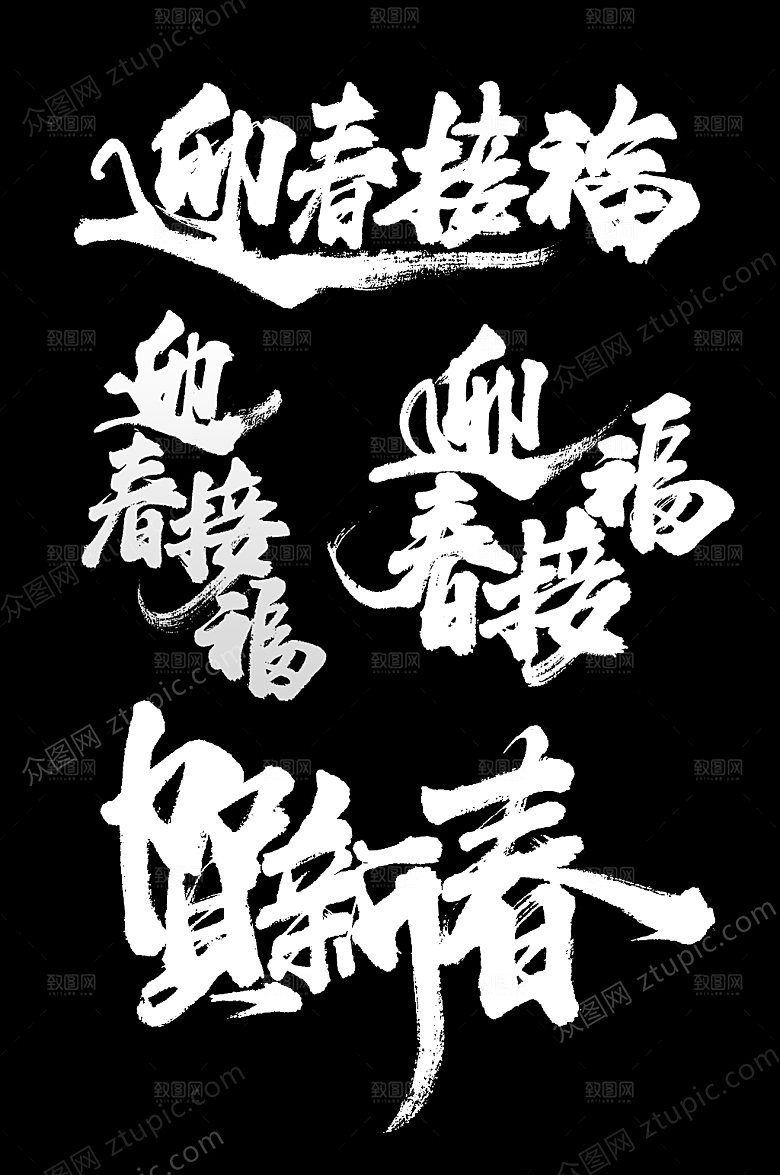 迎春接福
迎
春接
福
迎
福
春接
賀新春
众图网 ztupic.com
致图网